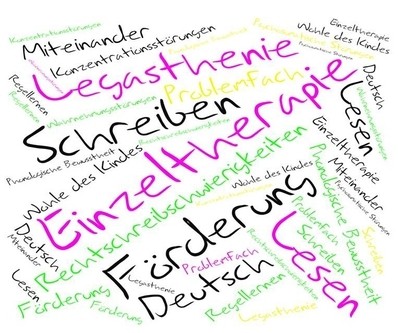 Konzentrationsstörungen
Miteinander
Konzentrationsstörungen
Einzeltherapie
Wohle des Kindes
Legasthenie
Problemfach
Deutsch
Regellernen
Wahrnehmungsstörungen
Schreiben
Lesen
Phonologische Bewusstheit
Einzeltherapie
Wohle des Kindes
Einzeltherapie
Miteinander
Wohle des Kindes
Phonologische Bewusstheit
Deutsch
Miteinander
Rechtschreibschwierigkeiten
Förderung
Problemfach
Schreiben
Schreiben
Lesen
Lesen
Problemfach
Legasthenie
Förderung
Förderung
Deutsch
Regellernen
Legasthenie